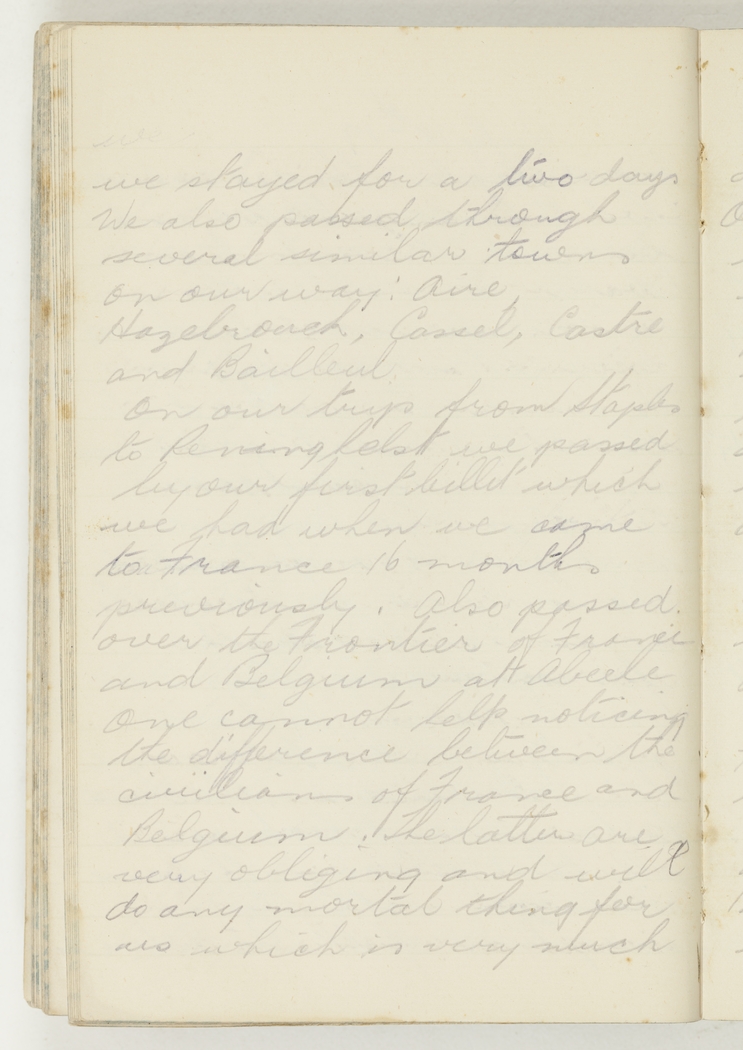 we stayed for a two days
We also passed through
several similar towns
on our way: Aire,
Hazebrouck, Cassel, Castre
and Bailleul.
On our trip from Staples
to Reninghelst we passed
by our first billet which
we had when we came
to France 16 months
previously. Also passed
over the Frontier of France
and Belgium att Abeele
One cannot help noticing
the difference between the
civilians of France and
Belgium. The latter are
very obliging and will
do any mortal thing for
us which is very much